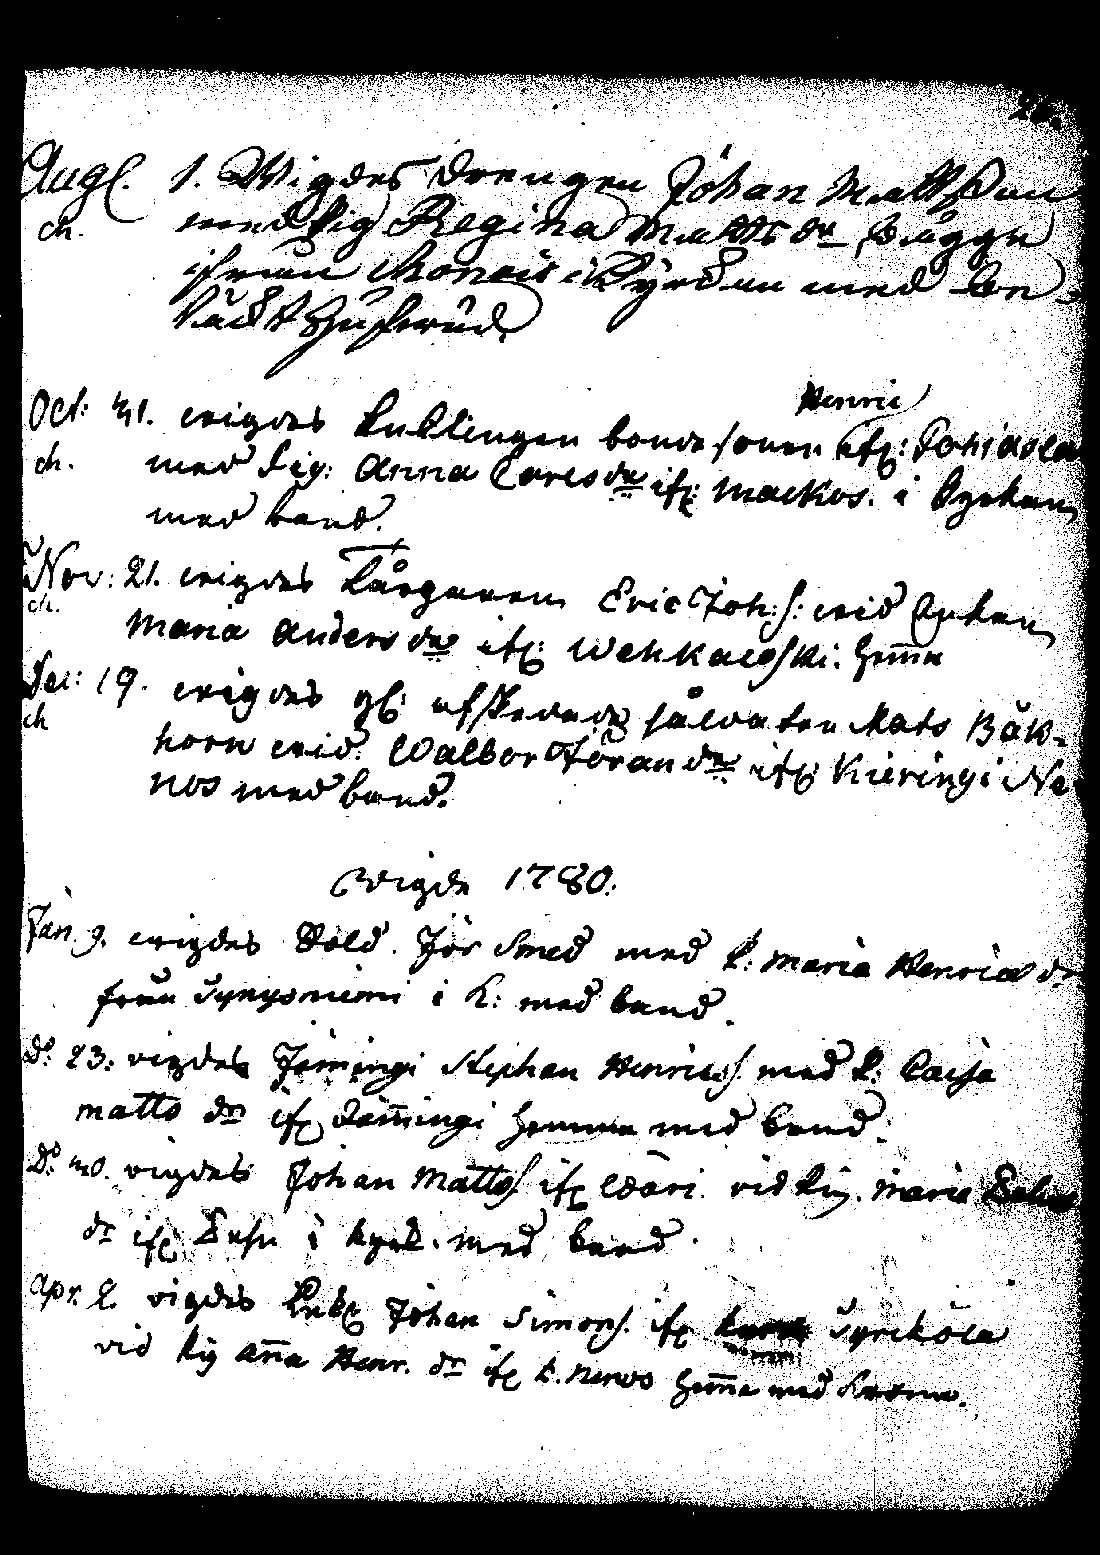 Aug. 1. Wigdes Drengen Johan Mattsson
ch. med Pig Regina Matts dr Bågge
ifrån i Kyrckan med be-
täckt hufwud.
Henric
Oct: 31. wigdes Enklingen bondesonen ifr: Tohiasla
ch. med Pig: Anna Carls dr ifr: Mackos. i Kyrkan
med band.
Nov: 21. wigdes Torparen Eric Joh:s: wid Enkan
ch. Maria Anders dr ifr: Wehkaoski. hemma
Dec: 19. wigdes gl: afskedade såldaten Mats Bäk-
ch horn wid Walbor Jöran dr ifr Kieringi Ne
nos med band.
Wigde 1780.
Jan 9. wigdes Sold. Jör Smed med P: Maria Henrics dr
från Synysniemi i K: med band.
d: 23: vigdes Jämingi Stephan Henrics: med P: Caisa
Matts dr ifr Jämingi hemma med band.
D: 30. vigdes Johan Matts: ifr Wari vid Pig. Maria
dr ifr i kyrk. med band.
Apr. 2. vigdes Enkl Johan Simons: ifr Syriköla
vid Pig Anna Henr. dr ifr hemma med